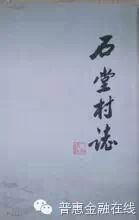 石堂村誌
普惠金融在线